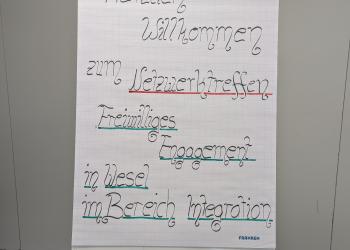 Herzlich
Willkommen
zum Netzwerktreffen
Freiwilliges
Engagement
in Wesel
im Bereich Integration
FRANKEN